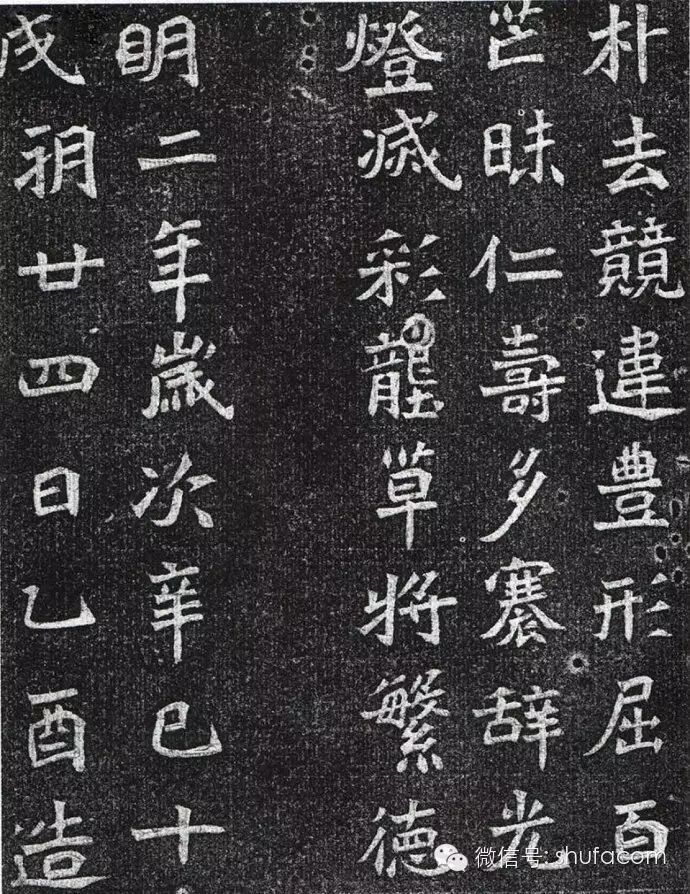 朴去競違豊形屈百
芒昧仁壽多褰辞光
燈滅彩壟草將繁德
明二年歲次辛巳十
戊朔廿四日乙酉造
微信号: shufacom